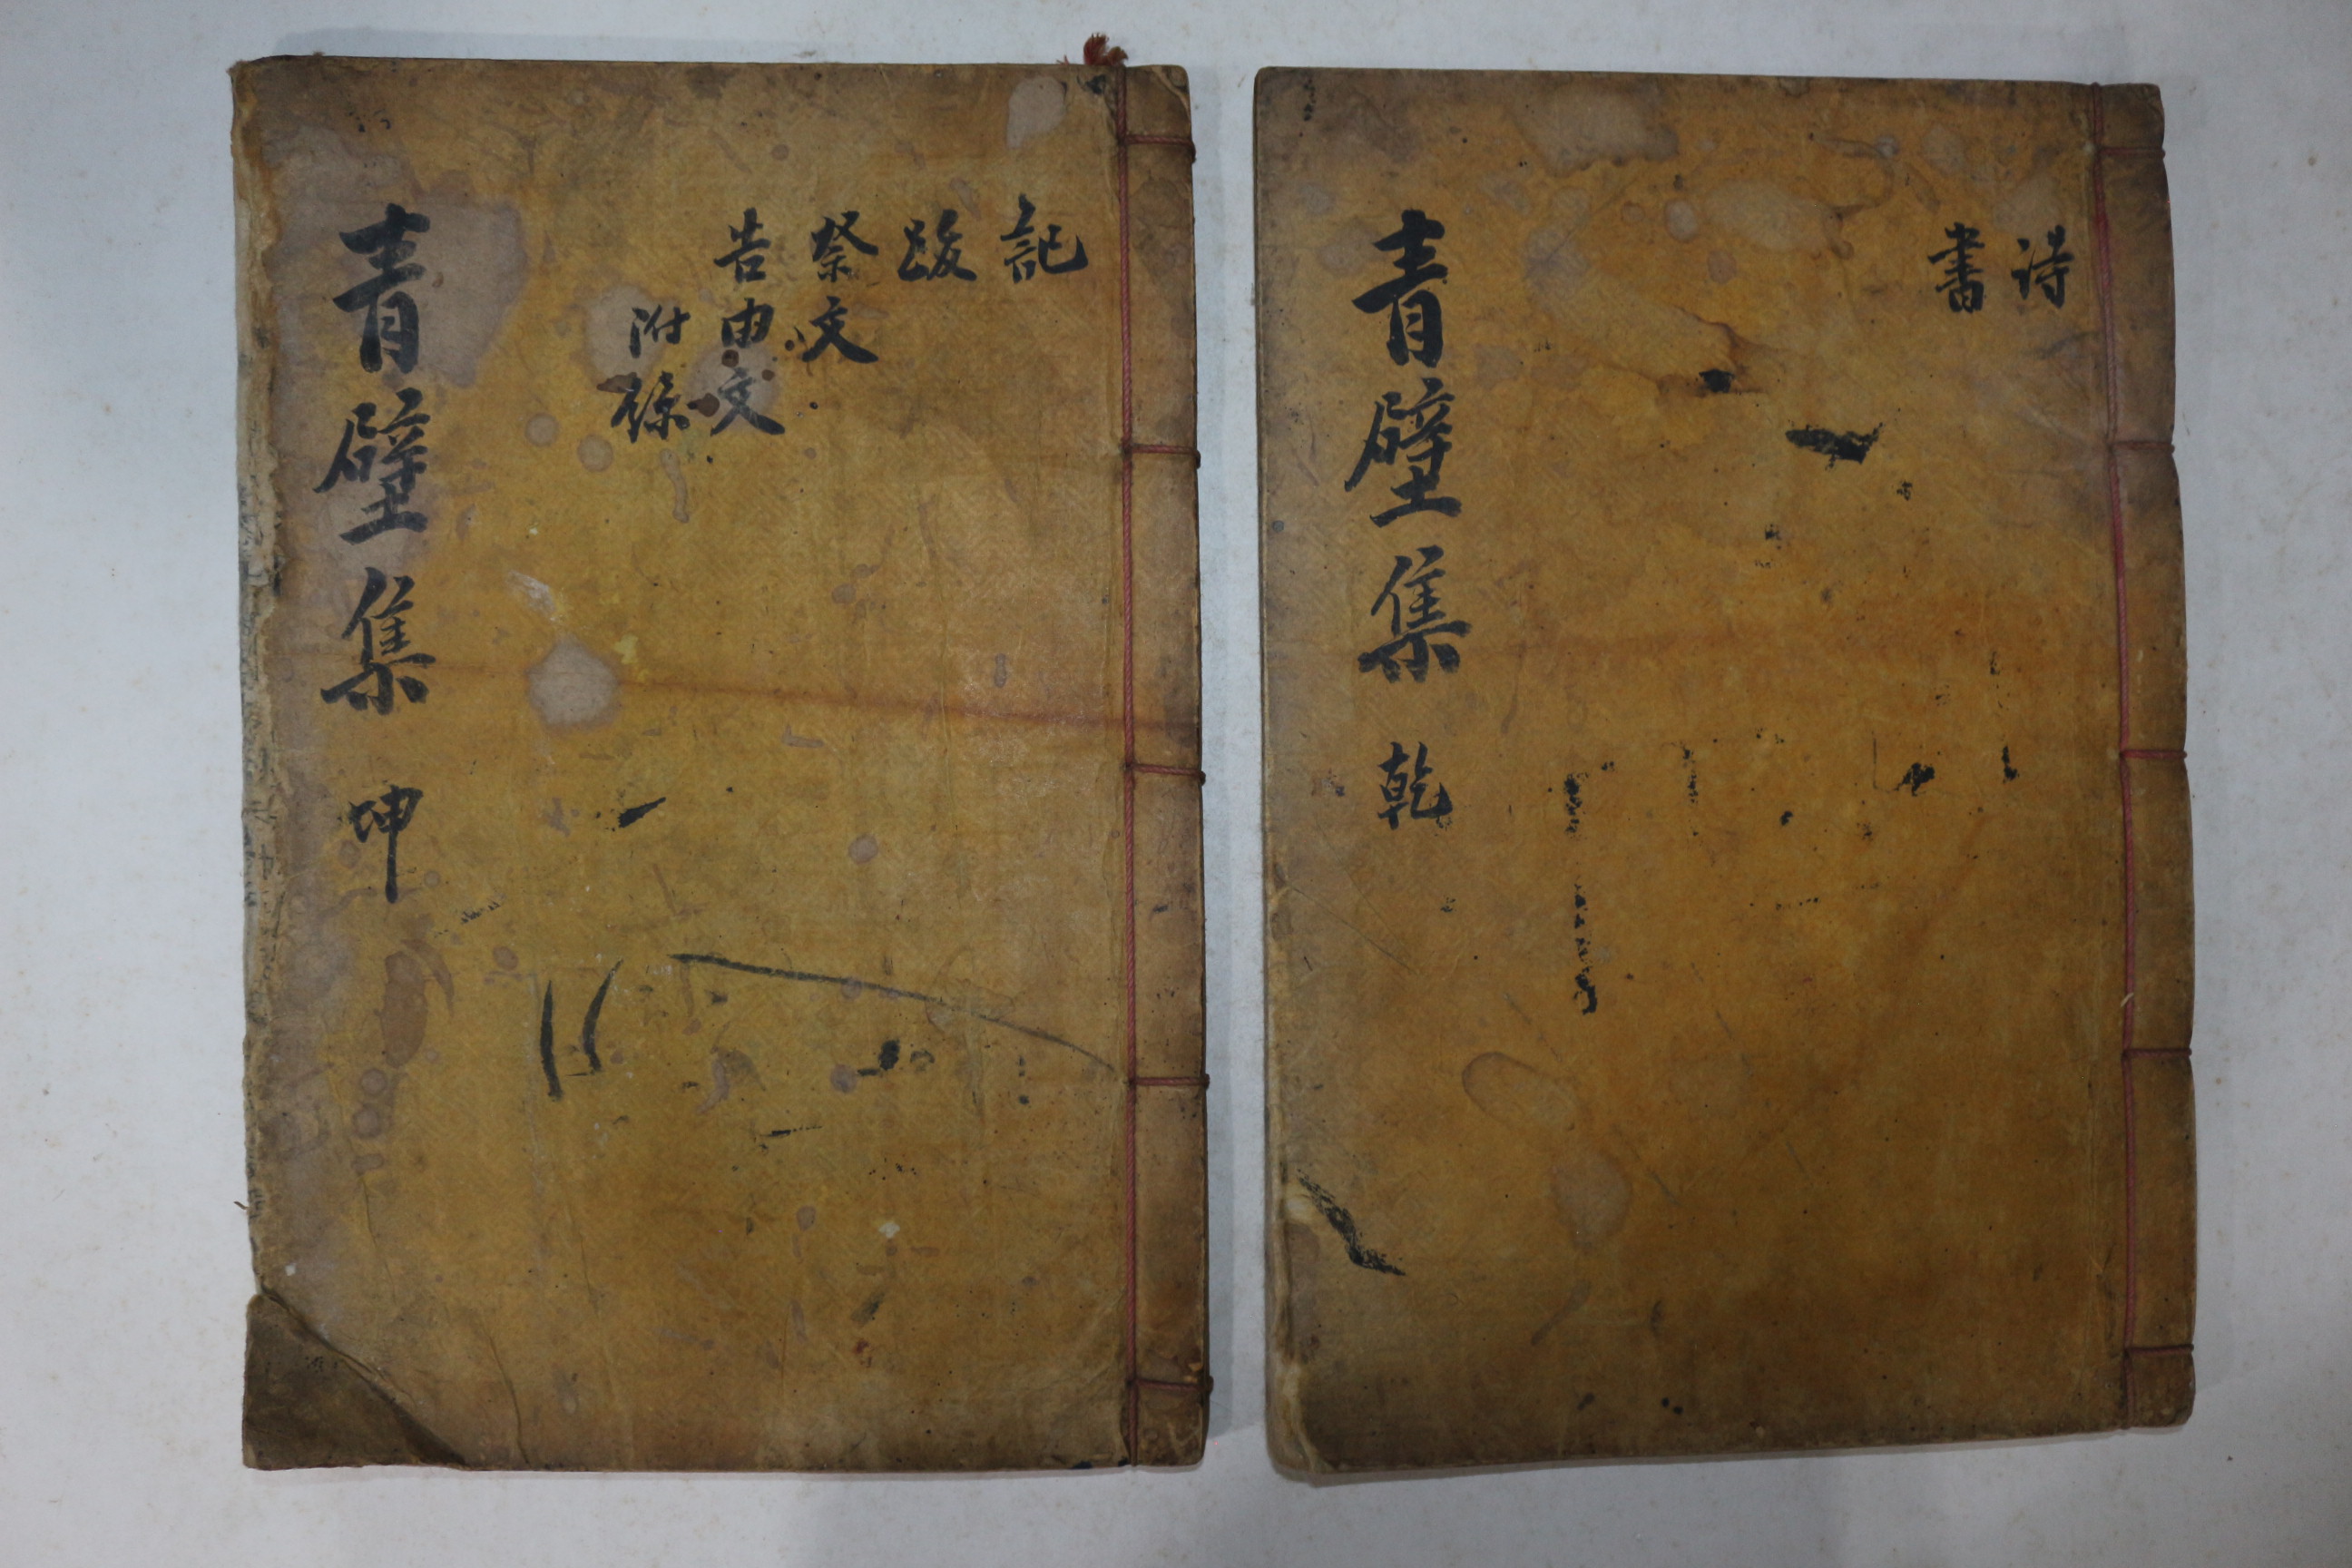 詩
書
青壁集 乾
記
跋
祭文
告由文
附錄
青壁集 坤